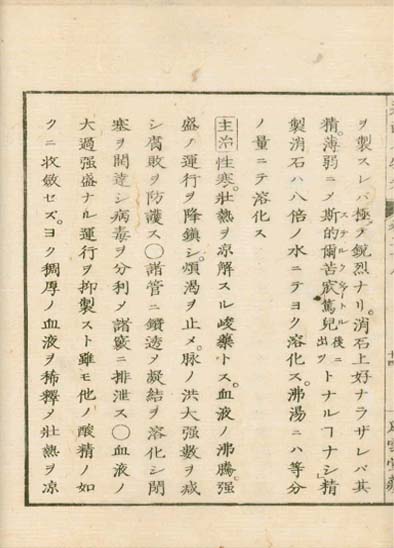 ヲ製スレバ極テ銳烈ナリ。消石上好ナラザレバ其
精。薄弱ニメ斯的爾苦底篤兒 後ニ出ツ トナルヿナシ」精
ステルクワートル
製消石ハ八倍ノ水ニテヨク溶化ス。沸湯ニハ等分
ノ量ニテ溶化ス
主治 性寒。壯熱ヲ凉解スル峻藥トス。血液ノ沸騰。强
盛ノ運行ヲ降鎭シ。煩渴ヲ止メ。脉ノ洪大强數ヲ减
シ腐敗ヲ防護ス〇諸管ニ鑽透メ凝結ヲ溶化シ閉
塞ヲ開達シ病毒ヲ分利メ諸竅ニ排泄ス〇血液ノ
大過强盛ナル運行ヲ抑製スト雖モ他ノ酸精ノ如
クニ收斂セズ。ヨク稠厚ノ血液ヲ稀釋メ壯熱ヲ凉